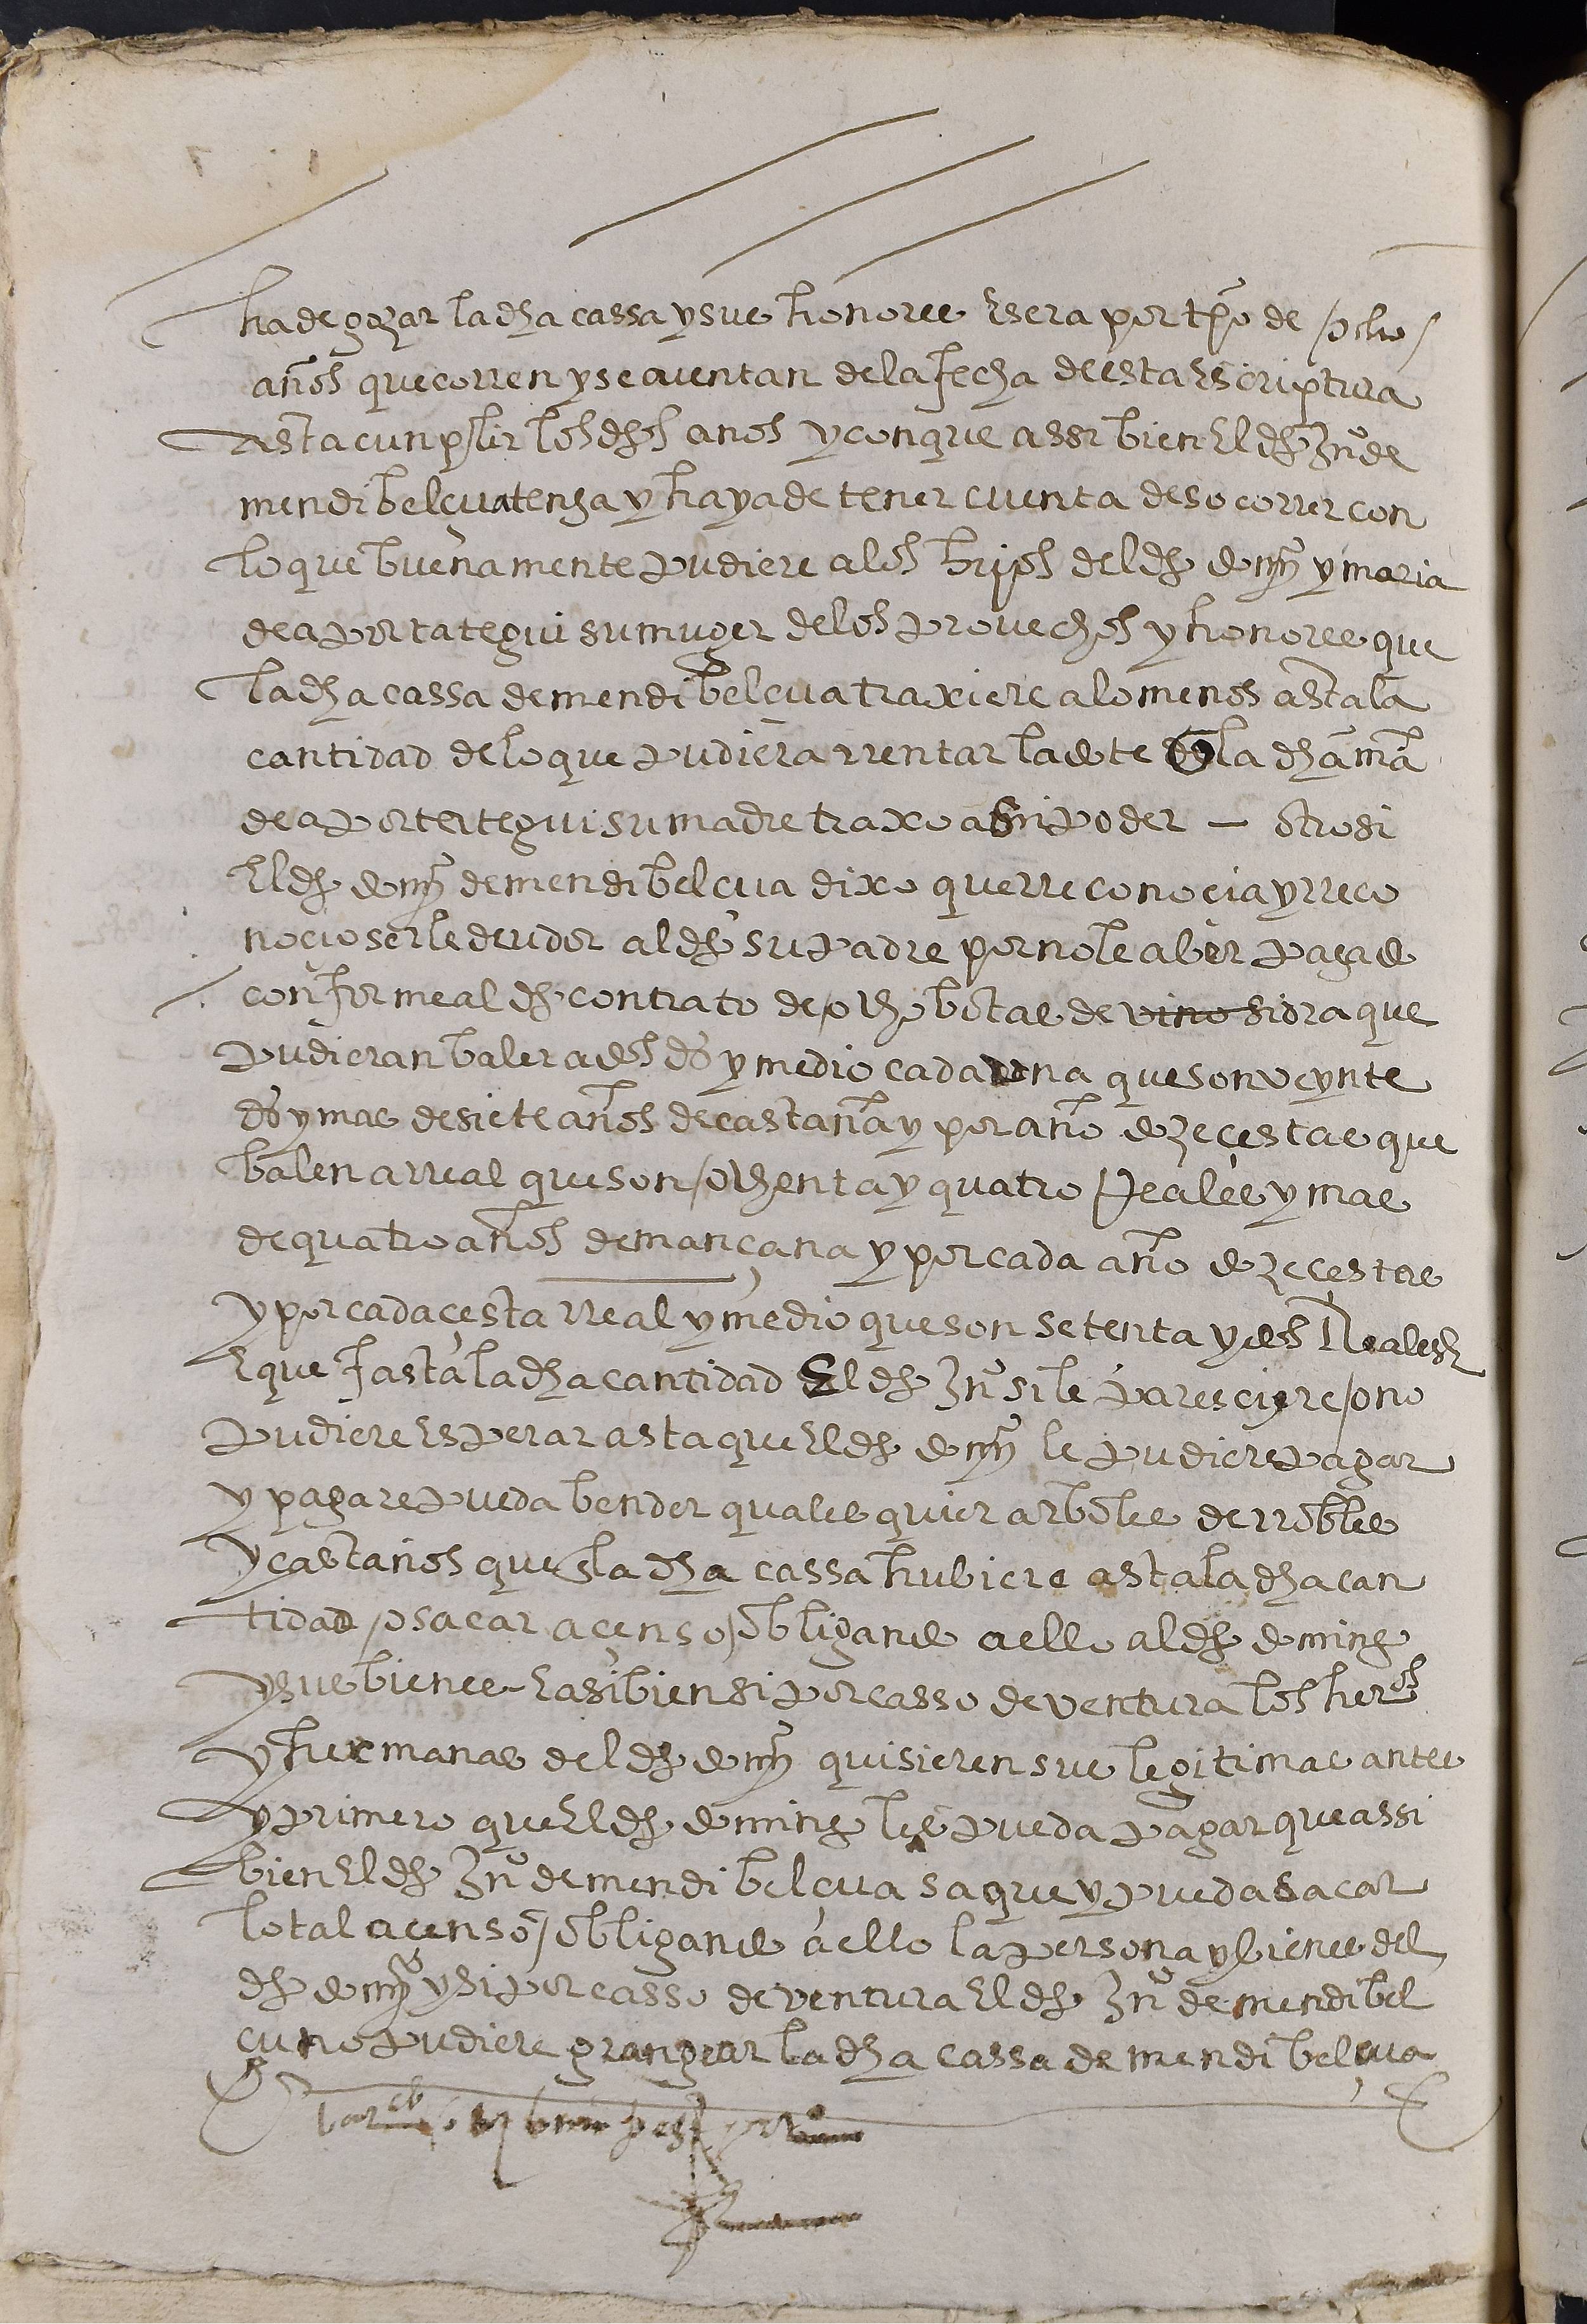 ha de gozar la dha cassa y sus honores Esera por tpo de /ocho/
años que corren y se quentan de la fecha de esta Escriptura
asta cunplir los dhos anos y con que assi bien El dho Juº de
mendibelçua tenga y haya de tener cuenta de socorrer con
lo que buenamente pudiere a los hijos del dho domº y maria
de aportategui su muger de los provechos y honores que
la dha cassa de mendibelçua traxiere a lo menos asta la
cantidad de lo que pudiera rrentar la dote de la dha mª
de aportategui su madre traxo a su poder — otrosi
El dho domº de mendibelcua dixo que rreconocia y rreco
nocio serle deudor al dho su padre por no le aber pagado
conforme al dho contrato de ocho botas de vino sidra que
pudieran baler a dos dºs y medio cada una que son veynte
dºs y mas de siete años de castaña y por año doze cestas que
balen a rreal que son /ochenta y quatro Reales y mas
de quatro años de mançana y por cada año doze cestas
y por cada çesta rreal y medio que son setenta y dos Reales
E que fasta la dha cantidad El dho Juº si le paresciere /o no
pudiere Esperar asta que El dho domº le pudiere pagar
y pagare pueda bender quales quier arboles de rrobles
y castaños que En la dha cassa hubiere asta la dha can
tidad /o sacar a çenso /obligando a ello al dho domingo
y sus bienes - E asi bien si por casso de ventura los heros
y hermanas del dho domº quisieren sus legitimas antes
y primero que El dho domingo les pueda pagar que assi
bien El dho Juº de mendibelçua saque y pueda sacar
lo tal a censo /obligando a ello la persona y bienes del
dho domº y si por casso de ventura El dho Juº de mendibel
cu no pudiere grangear la dha cassa de mendibelçua